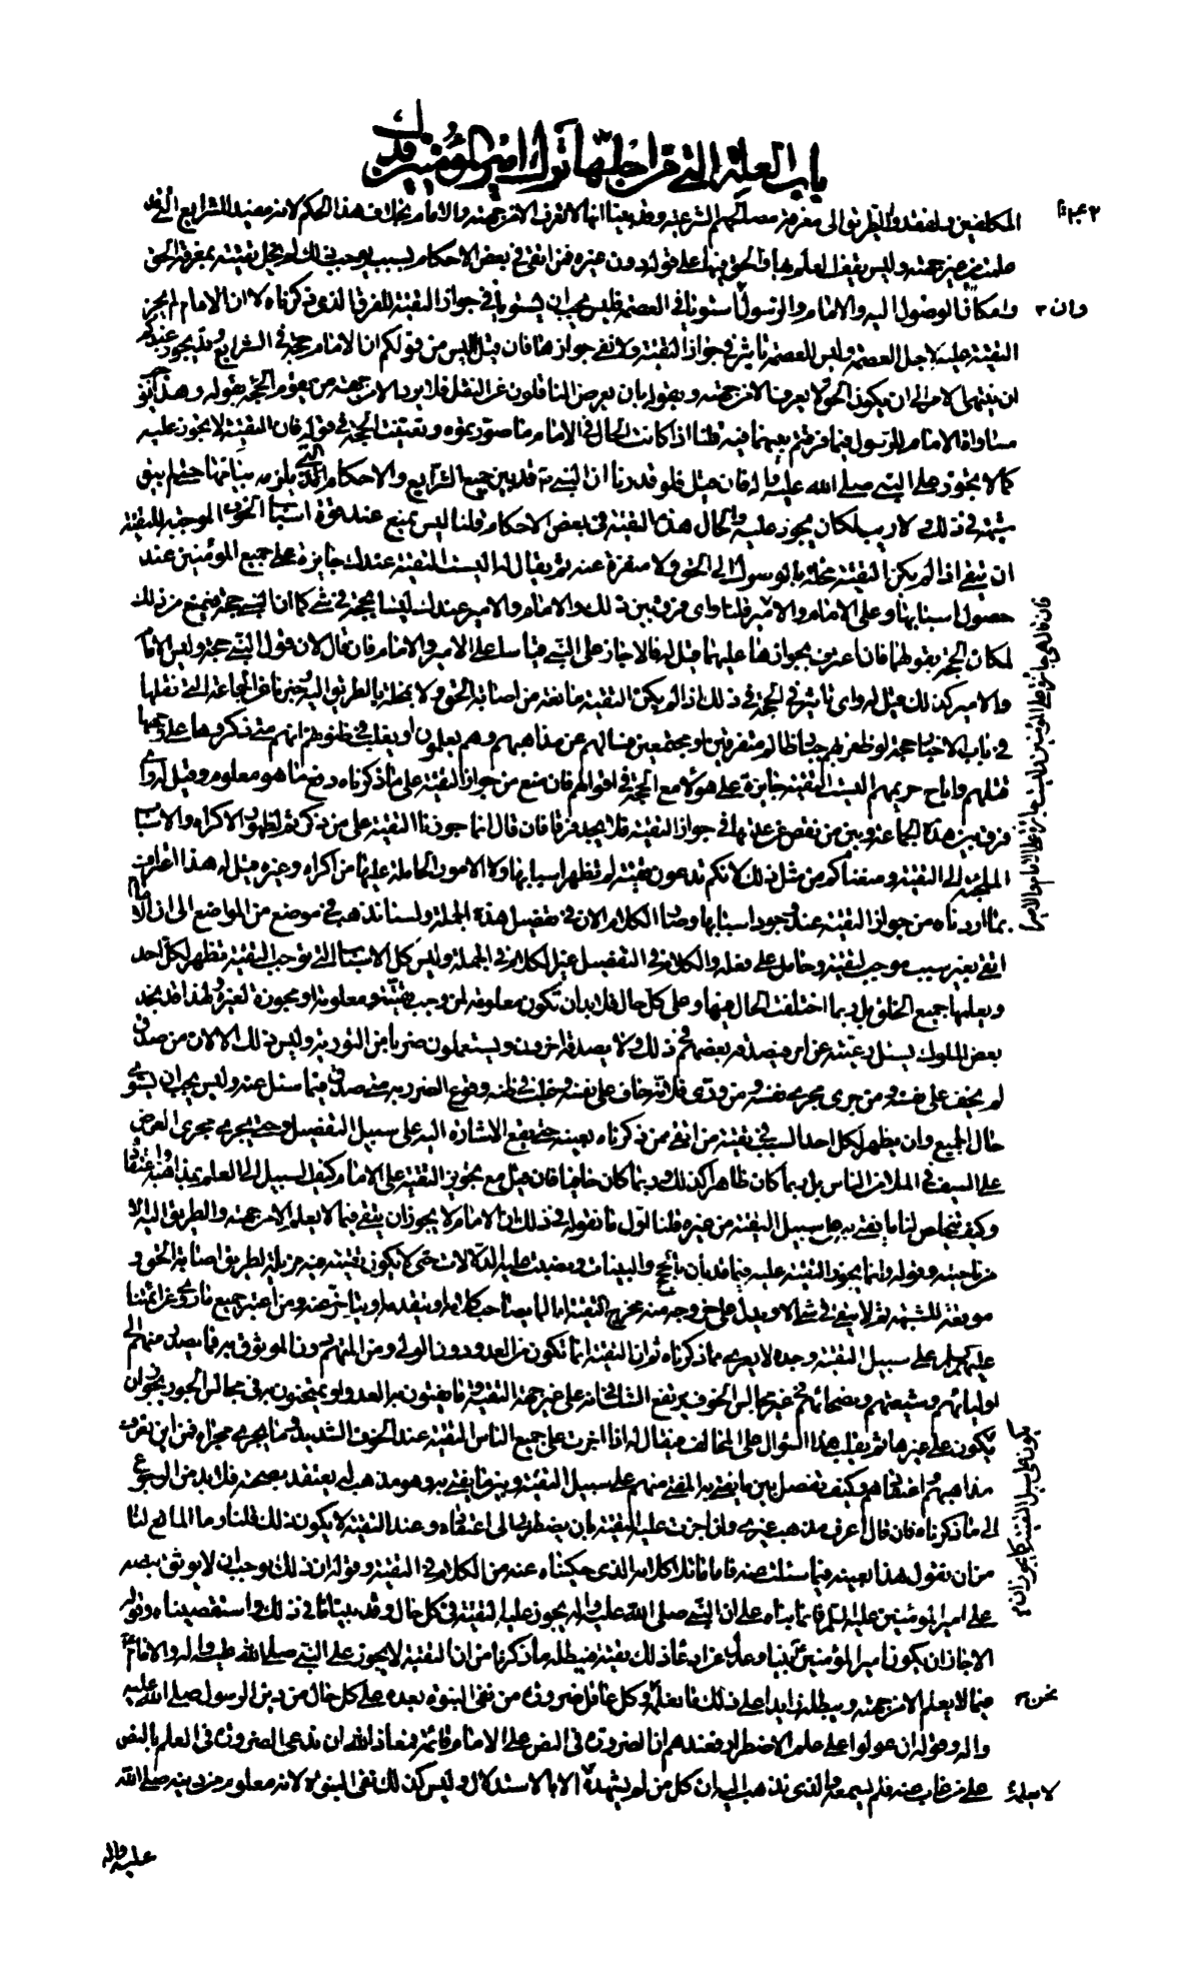 باب العلة التي من اجلها ترك امير المؤمنين فدك
المكلفين ولفقدوا الطريق الى معرفة مصالحهم الشرعية وقد بينا انها لا تعرف الا من جهته والامام بخلاف هذا الحكم لانه مفيد للشرايع التي قد
علمت من غير جهته وليس يقف العلم بها والحق فيها على قوله دون غيره فمن اتقى في بعض الاحكام لسبب يوجب ذلك لم يخل تقيته بمعرفة الحق
وامكان الوصول اليه والامام والرسول وان استويا في العصمة فليس يجب ان يستويا في جواز التقية للفرق الذي ذكرناه لان الامام لم يجز
التقية عليه لاجل العصمة وليس للعصمة تاثير في جواز التقية ولا نفي جوازها فان قيل اليس من قولكم ان الامام حجة في الشرايع وقد يجوز عندكم
ان ينتهي الامر الى ان يكون الحق لا يعرف الا من جهته وبقوله بان يعرض الناقلون عن النقل فلا يرد الا من جهة من يقوم الحجة بقوله وهذا يوجب
مساواة الامام للرسول فيما فرقتم بينهما فيه قلنا اذا كانت الحال في الامام ما صورتموه وتعينت الحجة في قوله فان التقية لا يجوز عليه
كما لا يجوز على النبي صلى الله عليه واله فان قيل فلو قدرنا ان النبي ص قد بين جميع الشرايع والاحكام التي يلزمه بيانها حتى لم يبق
شبهة في ذلك ولا ريب لكان يجوز عليه والحال هذه التقية في بعض الاحكام قلنا ليس يمنع عند قوة اسباب الخوف الموجبة للتقية
ان يتقي اذا لم يكن التقية مخلة بالوصول الى الحق ولا منفرة عنه ثم يقال له اليست التقية عندك جايزة على جميع المؤمنين عند
حصول اسبابها وعلى الامام والامير فان قال هي جائزة على المؤمنين وليست جائزة على الامام والامير قلنا واي فرق بين ذلك والامام والامير عندك ليسا بحجة في شي كما ان النبي حجة فيمنع من ذلك
لمكان الحجة بقولهما فان اعترف بجوازها عليهما قيل له فالا جاز على النبي قياسا على الامير والامام فان قال لان قول النبي حجة وليس الامام
والامير كذلك قيل له واي تاثير في الحجة في ذلك اذا لم يكن التقية مانعة من اصابة الحق ولا بمخلة بالطريق اليه وخبرنا عن الجماعة التي نقلها
في باب الاخبار حجة لو ظفر بهم جبار ظالم متفرقين او مجتمعين فسالهم عن مذاهبهم وهم يعلمون او يغلب في ظنونهم انهم متى ذكروها على وجهها
قتلهم واباح حريمهم اليست التقية جايزة على هؤلاء مع الحجة في اقوالهم فان منع من جواز التقية على ما ذكرناه دفع ما هو معلوم وقيل له واي
فرق بين هذه الجماعة وبين من نقص عن عدتها في جواز التقية فلا يجد فرقا فان قال انما جوزنا التقية على من ذكرتم لظهور الاكراه والاسباب
الملجئة الى التقية ومنعناكم من مثل ذلك لانكم تدعون تقية لم تظهر اسبابها ولا الامور الحاملة عليها من اكراه وغيره قيل له هذا اعتراف
بما اردناه من جواز التقية عند وجود اسبابها وصار الكلام الان في تفصيل هذه الجملة ولسنا نذهب في موضع من المواضع الى ان الامام
اتقى بغير سبب موجب لتقية وحامل على فعله والكلام في التفصيل غير الكلام في الجملة وليس كل الاسباب التي توجب التقية تظهر لكل احد
ويعلمها جميع الخلق بل ربما اختلفت الحال فيها وعلى كل حال فلا بد ان تكون معلومة لمن وجب تقيته ومعلومة او مجوزة لغيره ولهذا قد نجد
بعض الملوك يسئل رعيته عن امر فيصدقه بعضهم في ذلك ولا يصدقه اخرون ويستعملون ضربا من التورية وليس ذلك الا لان من صدق
لم يخف على نفسه ومن جرى مجرى نفسه ومن ورى فلانه خاف على نفسه وغلب في ظنه وقوع الضرر به متى صدق فيما سئل عنه وليس يجب ان يستوي
حال الجميع وان يظهر لكل احد السبب في تقية من اتقى ممن ذكرناه بعينه حتى يقع الاشارة اليه على سبيل التفصيل وحتى يجري مجرى العرض
على السيف في الملا من الناس بل ربما كان ظاهرا كذلك وربما كان خافيا فان قيل مع تجويز التقية على الامام كيف السبيل الى العلم بمذاهبه واعتقاده
وكيف يتخلص لنا ما يفتي به على سبيل التقية من غيره قلنا اول ما نقوله في ذلك ان الامام لا يجوز ان يتقي فيما لا يعلم الا من جهته والطريق اليه الا
من ناحيته وقوله وانما يجوز التقية عليه فيما قد بان بالحجج والبينات ونصبت عليه الدلالات حتى لا يكون تقيته فيه مزيلة لطريق اصابة الحق و
موقعة للشبهة ثم لا يتقي في شي الا ويدل على خروجه منه مخرج التقية اما لما يصاحب كلامه او يتقدمه او يتاخر عنه ومن اعتبر جميع ما روي عن ائمتنا
عليهم السلم على سبيل التقية وجده لا يعرى مما ذكرناه ثم ان التقية انما تكون من العدو دون الولي ومن المتهم دون الموثوق به فما يصدر منهم الى
اوليائهم وشيعتهم ونصحائهم في غير مجالس الخوف يرتفع الشك في انه على غير جهة التقية وما يفتون به العدو او يمتحنون به في مجالس الجور يجوز ان
يكون على سبيل التقية كما يجوز ان يكون على غيرها ثم يقلب هذا السؤال على المخالف فيقال له اذا اجزت على جميع الناس التقية عند الخوف الشديد وما يجري مجراه فمن اين تعرف
مذاهبهم واعتقادهم وكيف تفصل بين ما يفتي به المفتي منهم على سبيل التقية وبين ما يفتي به وهو مذهب له يعتقد بصحته فلا بد من الرجوع
الى ما ذكرناه فان قال اعرف مذهب غيري وان اجزت عليه التقية بان يضطرني الى اعتقاده وعند التقية لا يكون ذلك قلنا وما المانع لنا
من ان نقول هذا بعينه فيما سئلت عنه فاما ما تلا كلامه الذي حكيناه عنه من الكلام في التقية وقوله ان ذلك يوجب ان لا يوثق بنصه
على امير المؤمنين عليه السلم فانما بناه على ان النبي صلى الله عليه واله يجوز عليه التقية في كل حال وقد بينا ما في ذلك واستقصيناه وقوله
الا جاز ان يكون امير المؤمنين نبيا وعدل عن ادعاء ذلك تقية فيبطله ما ذكرنا من ان التقية لا يجوز على النبي صلى الله عليه واله والامام
فيما لا يعلم الا من جهته ويبطله زايدا على ذلك ما نعلمه نحن وكل عاقل ضرورة من نفي النبوة بعده على كل حال من دين الرسول صلى الله عليه
واله وقوله ان عولوا على علم الاضطرار فعندهم ان الضرورة في النص على الامام قائمة فمعاذ الله ان ندعي الضرورة في العلم بالنص
على من غاب عنه فلم يسمعه والذي نذهب اليه ان كل من لم يشهده لا يعلمه الا بالاستدلال وليس كذلك نفي النبوة لانه معلوم من دينه صلى الله
عليه واله